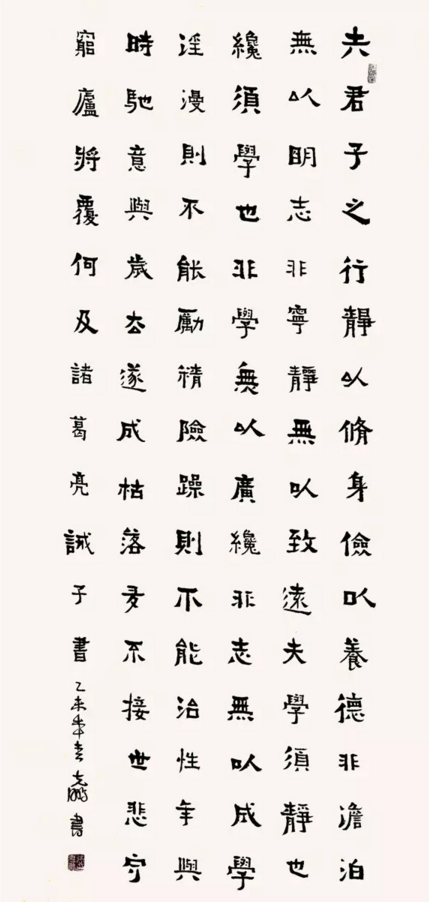 夫君子之行靜以脩身儉以養德非澹泊
無以明志非寧靜無以致遠夫學須靜也
纔須學也非學無以廣纔非志無以成學
淫漫則不能勵精險躁則不能治性年與
時馳意與歲去遂成枯落多不接世悲守
窮廬將覆何及諸葛亮誡子書
乙未年
書